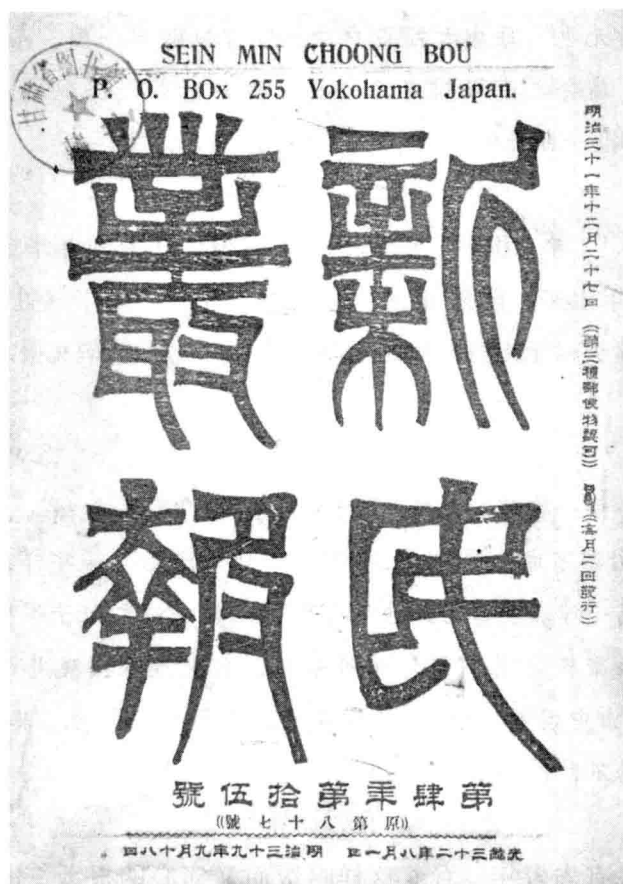 SEIN MIN CHOONG BOU
P. O. BOx 255 Yokohama Japan.
甘肅省
新民
叢報
明治三十一年十二月二十七日《第三種郵便物認可》《每月二回發行》
第肆秊第拾伍號
《原第八十七號》
光緒三十二年八月一日 明治三十九年九月十八日